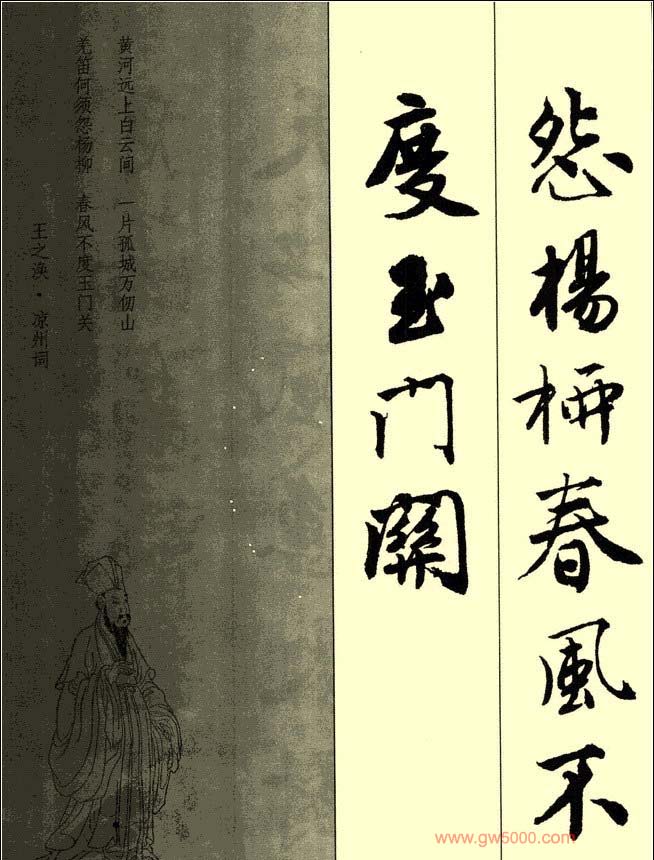 怨楊柳春風不
度玉門關
黄河远上白云间 一片孤城万仞山
羌笛何须怨杨柳 春风不度玉门关
王之涣·凉州词
www.gw5000.com